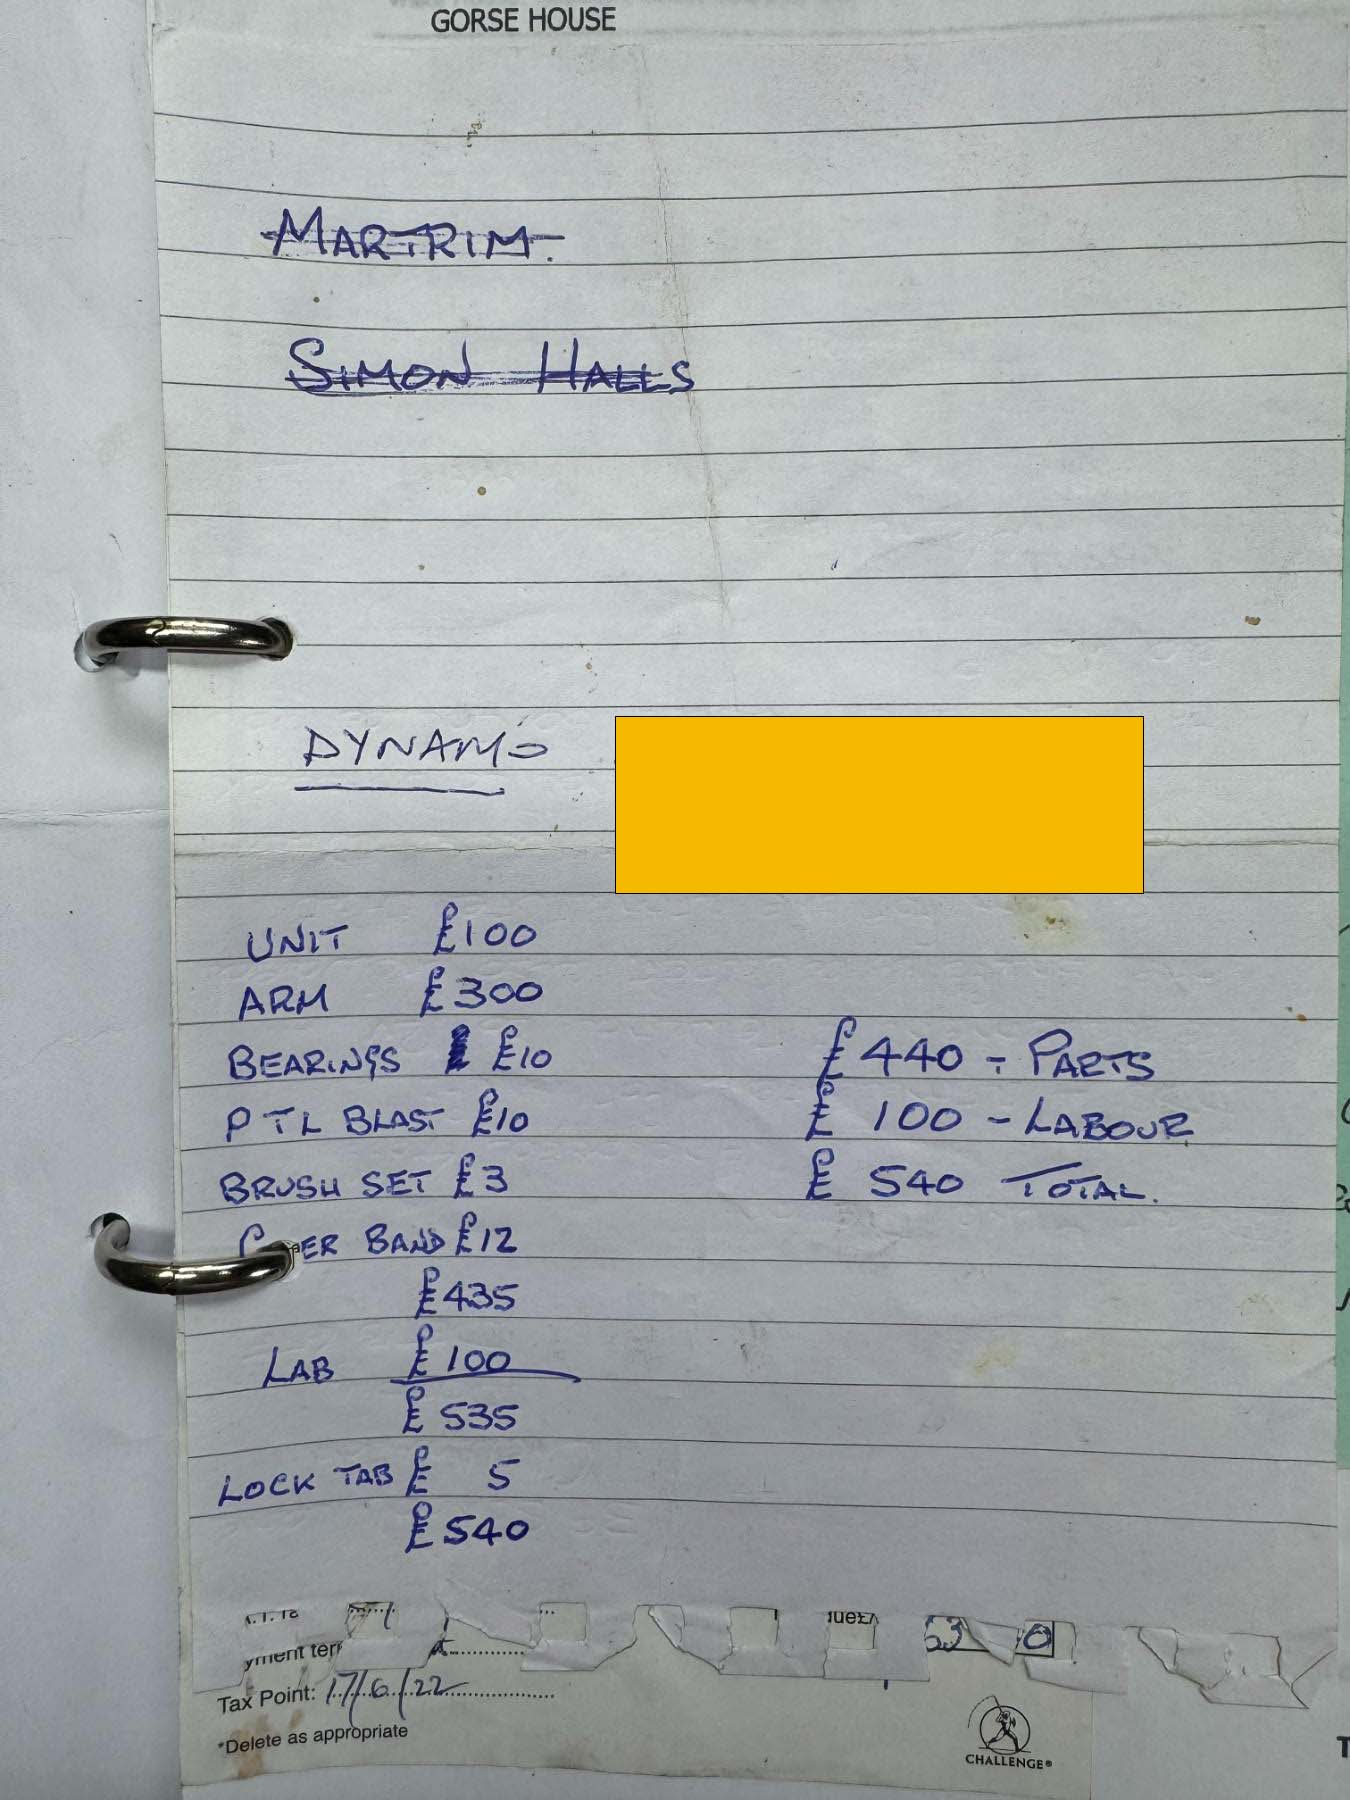 GORSE HOUSE
MARTRIM.
SIMON HALLS
DYNAMO
UNIT £100
ARM £300
BEARINGS £10
PTL BLAST £10
BRUSH SET £3
BAND £12
£435
LAB £100
£535
LOCK TAB £ 5
£540
£440 - PARTS
£ 100 - LABOUR
£ 540 TOTAL.
Tax Point: 17/6/22
*Delete as appropriate
CHALLENGE®